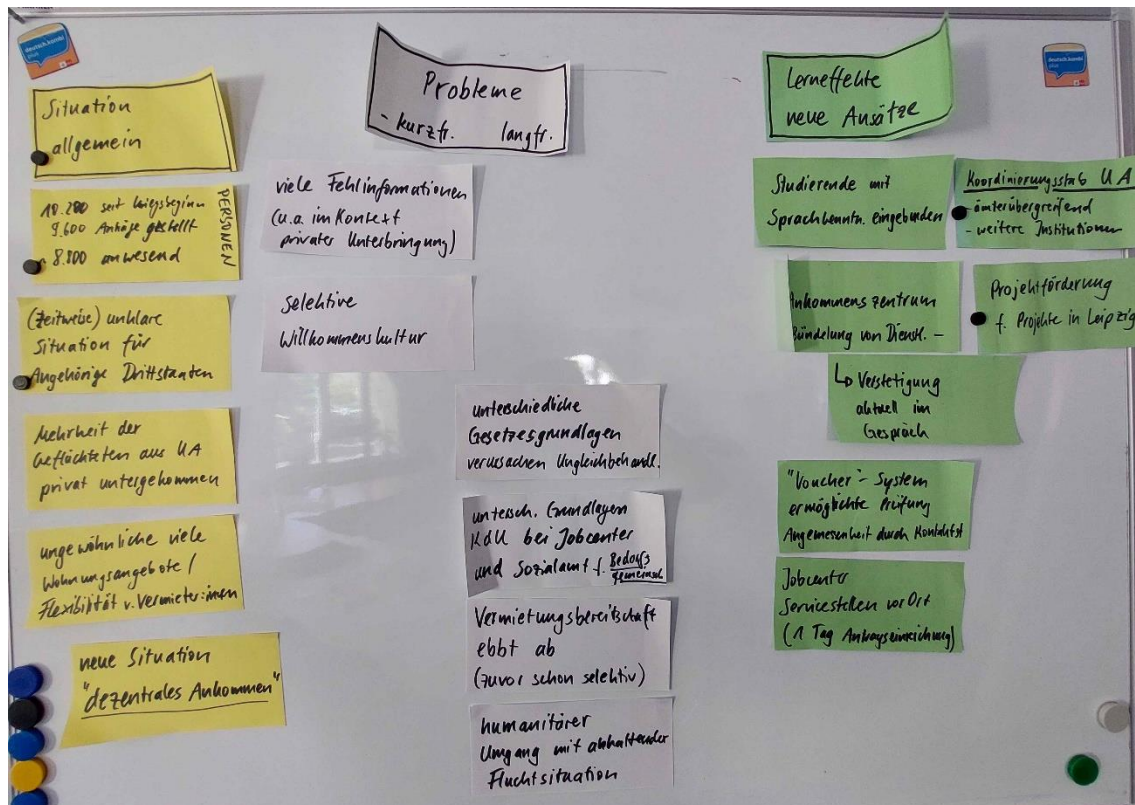 deutsch.kombi
plus
Situation
allgemein
10.200 seit Kriegsbeginn
9.600 Anträge gestellt
8.800 anwesend
PERSONEN
(zeitweise) unklare
Situation für
Angehörige Drittstaaten
Mehrheit der
Geflüchteten aus UA
privat untergekommen
ungewöhnliche viele
Wohnungsangebote /
Flexibilität v. Vermieter:innen
neue Situation
"dezentrales Ankommen"
Probleme
- kurzfr. langfr.
viele Fehlinformationen
(u.a. im Kontext
privater Unterbringung)
Selektive
Willkommenskultur
unterschiedliche
Gesetzesgrundlagen
verursachen Ungleichbehandl.
untersch. Grundlagen
KdU bei Jobcenter
und Sozialamt f. Bedarfs
gemeinsch
Vermietungsbereitschaft
ebbt ab
(zuvor schon selektiv)
humanitärer
Umgang mit anhaltender
Fluchtsituation
Lerneffekte
neue Ansätze
Studierende mit
Sprachkenntn. eingebunden
Koordinierungsstab UA
- ämterübergreifend
- weitere Institutionen
Ankommenszentrum
Bündelung von Dienstl. -
Projektförderung
f. Projekte in Leipzig
↳ Verstetigung
aktuell im
Gespräch
"Voucher"-System
ermöglichte Prüfung
Angemessenheit durch Kontaktst
Jobcenter
Servicestellen vor Ort
(1 Tag Antragseinreichung)
deutsch.kombi
plus